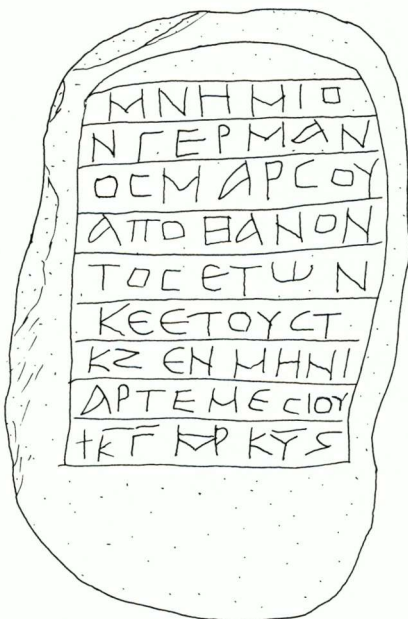 ΜΝΗΜΙΟ
ΝΓΕΡΜΑΝ
ΟCΜΑΡCΟΥ
ΑΠΟΘΑΝΟΝ
ΤΟCΕΤΩΝ
ΚΕΕΤΟΥCΤ
ΚΖ ΕΝ ΜΗΝΙ
ΑΡΤΕΜΕCΙΟΥ
†ΚΓ̅ ΗΜΡ ΚΥ̅ Ϛ